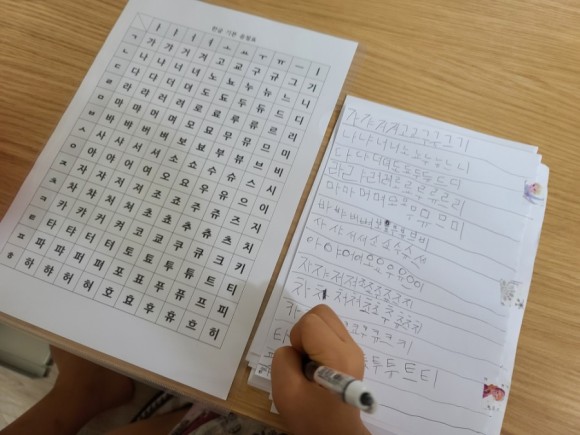 한글 기본 음절표
ㅏ ㅑ ㅓ ㅕ ㅗ ㅛ ㅜ ㅠ ㅡ ㅣ
ㄱ 가 갸 거 겨 고 교 구 규 그 기
ㄴ 나 냐 너 녀 노 뇨 누 뉴 느 니
ㄷ 다 댜 더 뎌 도 됴 두 듀 드 디
ㄹ 라 랴 러 려 로 료 루 류 르 리
ㅁ 마 먀 머 며 모 묘 무 뮤 므 미
ㅂ 바 뱌 버 벼 보 뵤 부 뷰 브 비
ㅅ 사 샤 서 셔 소 쇼 수 슈 스 시
ㅇ 아 야 어 여 오 요 우 유 으 이
ㅈ 자 쟈 저 져 조 죠 주 쥬 즈 지
ㅊ 차 챠 처 쳐 초 쵸 추 츄 츠 치
ㅋ 카 캬 커 켜 코 쿄 쿠 큐 크 키
ㅌ 타 탸 터 텨 토 툐 투 튜 트 티
ㅍ 파 퍄 퍼 펴 포 표 푸 퓨 프 피
ㅎ 하 햐 허 혀 호 효 후 휴 흐 히
가 갸 거 겨 고 교 구 규 그 기
나 냐 너 녀 노 뇨 누 뉴 느 니
다 댜 더 뎌 도 됴 두 듀 드 디
라 랴 러 려 로 료 루 류 르 리
마 먀 머 며 모 묘 무 뮤 므 미
바 뱌 버 벼 브 비
사 샤 서 셔 소 쇼 수 슈 스
아 야 어 여 오 요 우 유 으 이
자 쟈 저 져 조 죠 주 쥬 즈 지
차 저 져 주
쿠 큐 크 키
투 튜 트 티